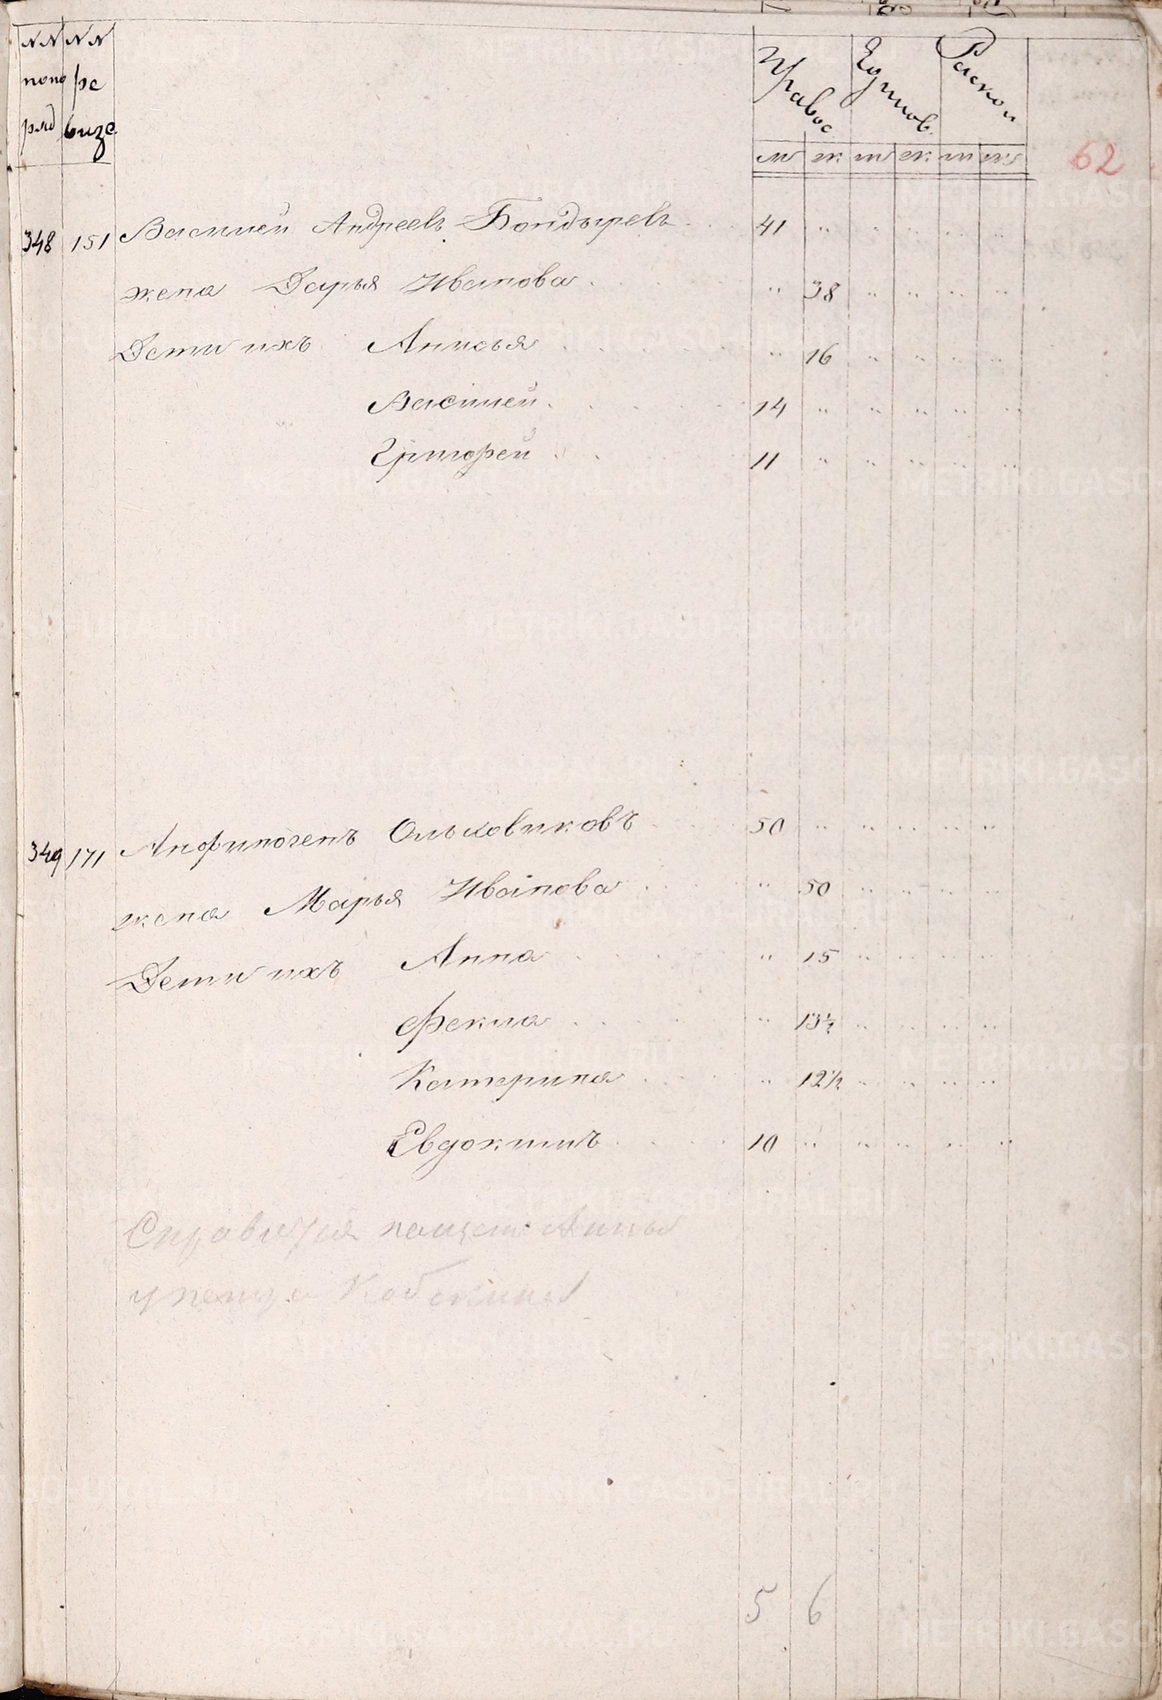 NN NN
попо ре
ряд визс
Правос Единов. Раскол
м ж. м ж. м ж
62
348 151 Василей Андреевъ Бондыревъ 41 " " " " "
жена Дарья Иванова " 38 " " " "
Дети ихъ Анисья " 16 " " " "
Василей 14 " " " " "
Григорей 11 " " " " "
349 171 Анфиногенъ Ольховиковъ 50 " " " " "
жена Марья Иванова " 50 " " " "
Дети ихъ Анна " 15 " " " "
Фекла " 13½ " " " "
Катерина " 12½ " " " "
Евдокимъ 10 " " " " "
Справится
5 6
METRIKI.GASO-URAL.RU